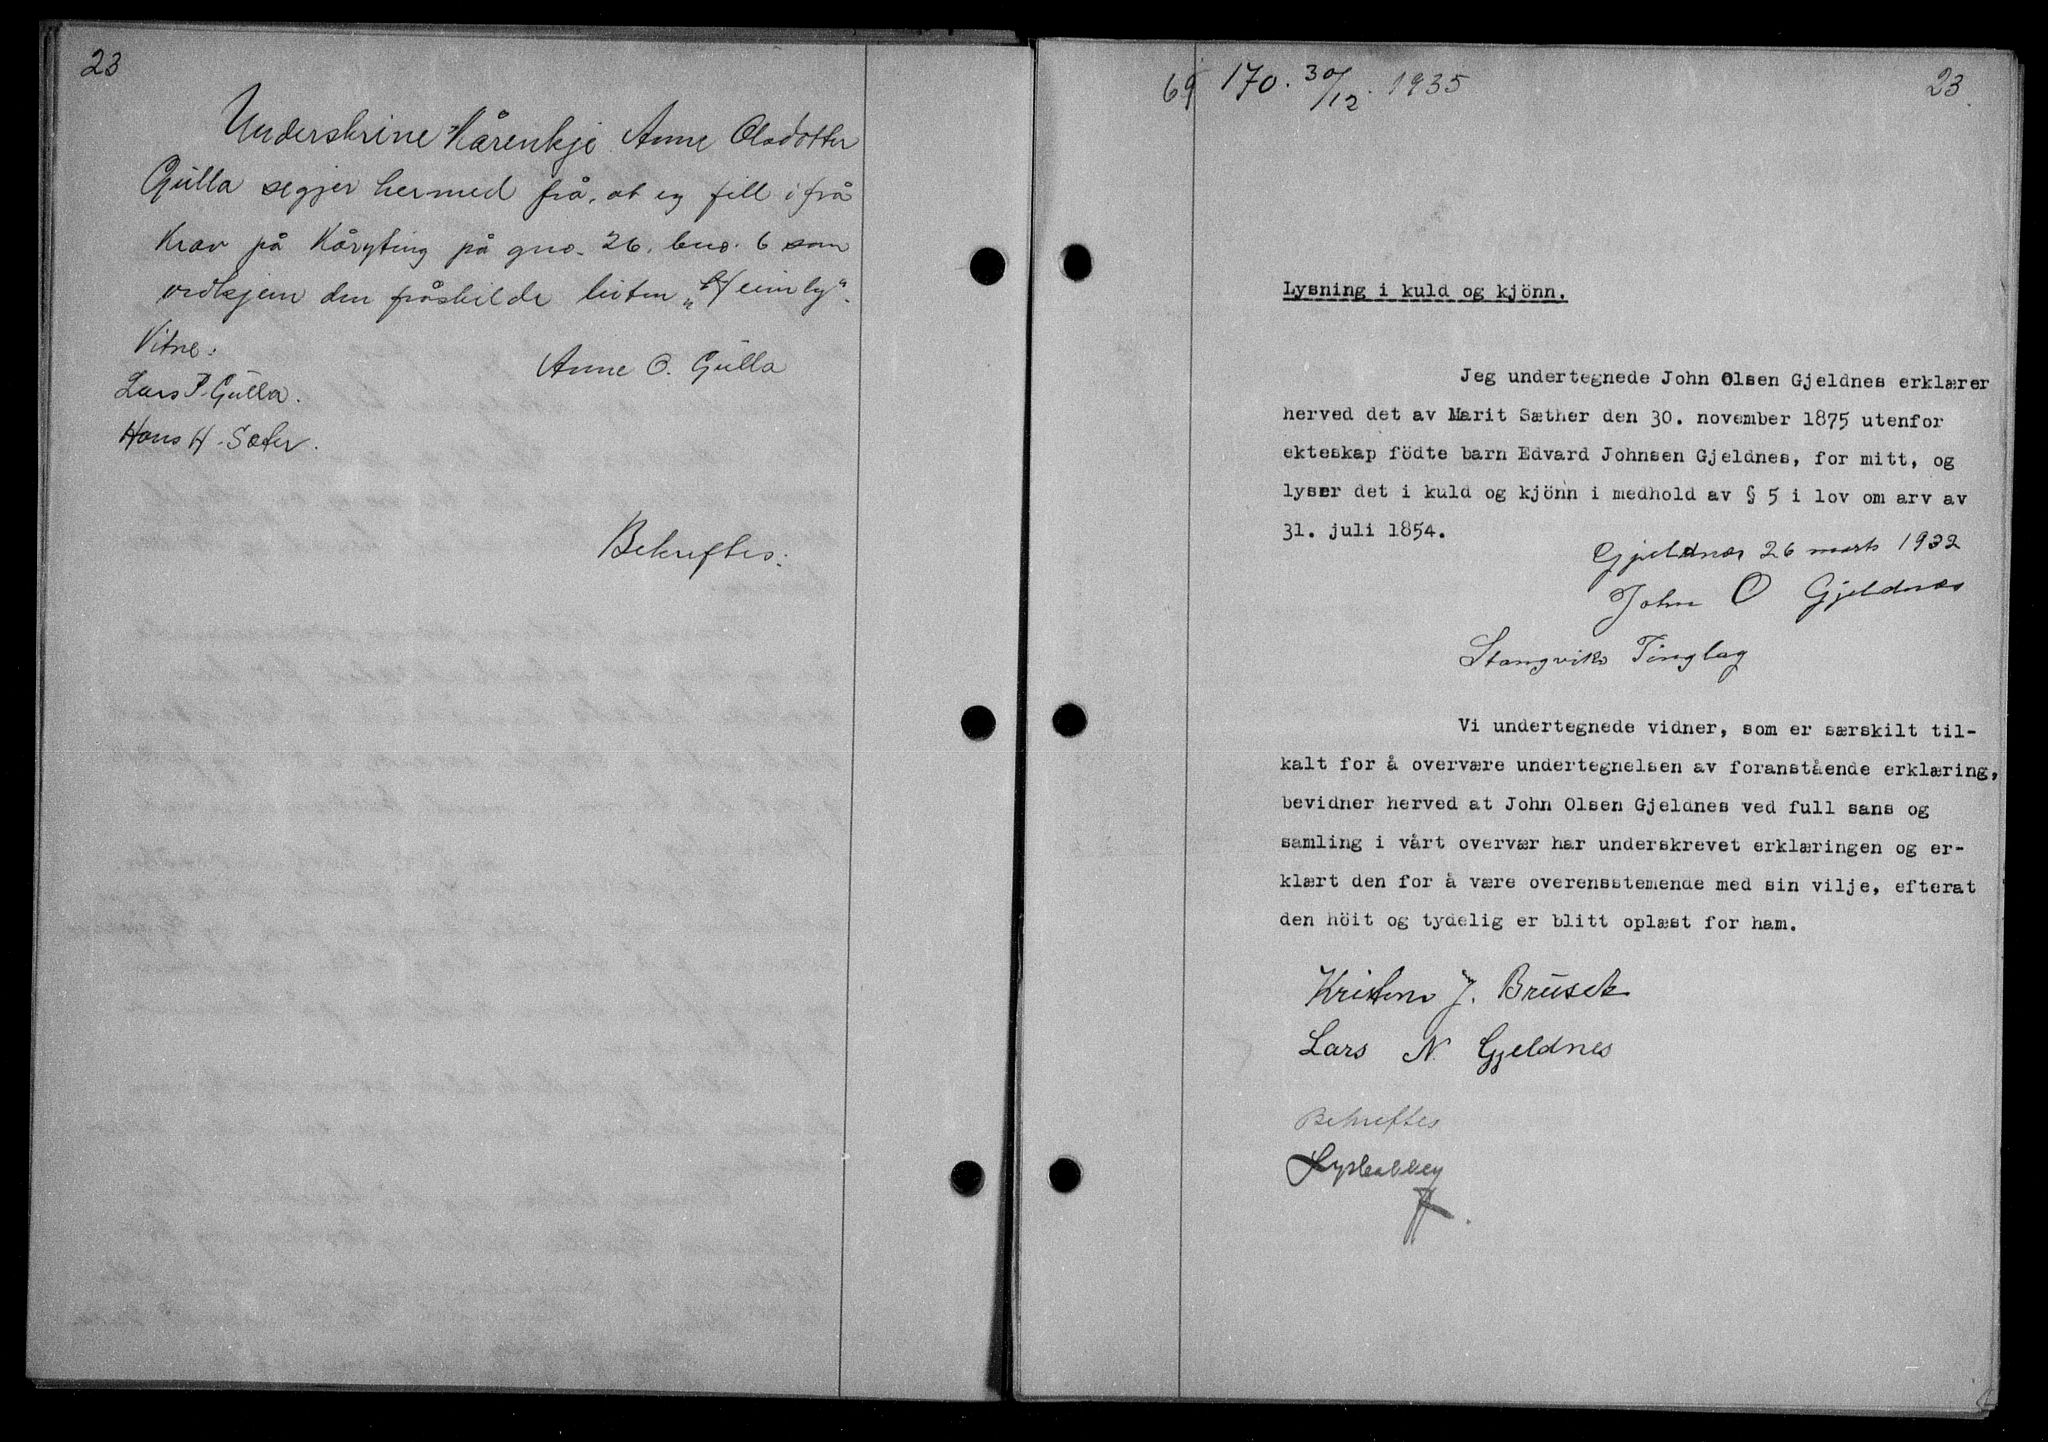 23
Underskrine Kårenkje Anne Olsdotter
Gulla segjer hermed frå, at eg fell i frå
Krav på Kåryting på gno. 26. bno. 6 som
vedkjem den fråskilde luten „Heimly“.
Vitne:
Anne O. Gulla
Lars P. Gulla.
Hans H. Sæter.
Bekreftes:
69 170. 30/12. 1935
23.
Lysning i kuld og kjönn.
Jeg undertegnede John Olsen Gjeldnes erklærer
herved det av Marit Sæther den 30. november 1875 utenfor
ekteskap födte barn Edvard Johnsen Gjeldnes, for mitt, og
lyser det i kuld og kjönn i medhold av § 5 i lov om arv av
31. juli 1854.
Gjeldnes 26 marts 1932
John O Gjeldnes
Stangviks Tinglag
Vi undertegnede vidner, som er særskilt til-
kalt for å overvære undertegnelsen av foranstående erklæring,
bevidner herved at John Olsen Gjeldnes ved full sans og
samling i vårt overvær har underskrevet erklæringen og er-
klært den for å være overensstemende med sin vilje, efterat
den höit og tydelig er blitt oplæst for ham.
J. Brusek
Lars N. Gjeldnes
Bekreftes